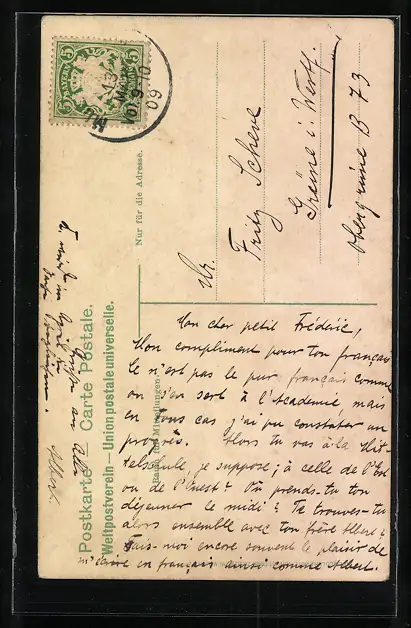 BAYERN
5
13
MAI
9-10
09
Nur für die Adresse.
Hr.
Fritz Scheve
Grüne i. Westf.
Obergrüne B 73
Postkarte – Carte Postale.
Weltpostverein – Union postale universelle.
Raum für Mitteilungen
Mon cher petit Frédéric,
Mon compliment pour ton français
Ce n'est pas le pur français comme
on s'en sert à l'Académie mais
en tous cas j'ai pu constater un
progrès. Alors tu vas à la Mit-
telschule, je suppose; à celle de l'Est
ou de l'Ouest? Où prends-tu ton
déjeuner le midi? Te trouves-tu
alors ensemble avec ton frère Albert?
Fais-moi encore souvent le plaisir de
m'écrire en français ainsi comme Albert.
Gruss an Alle